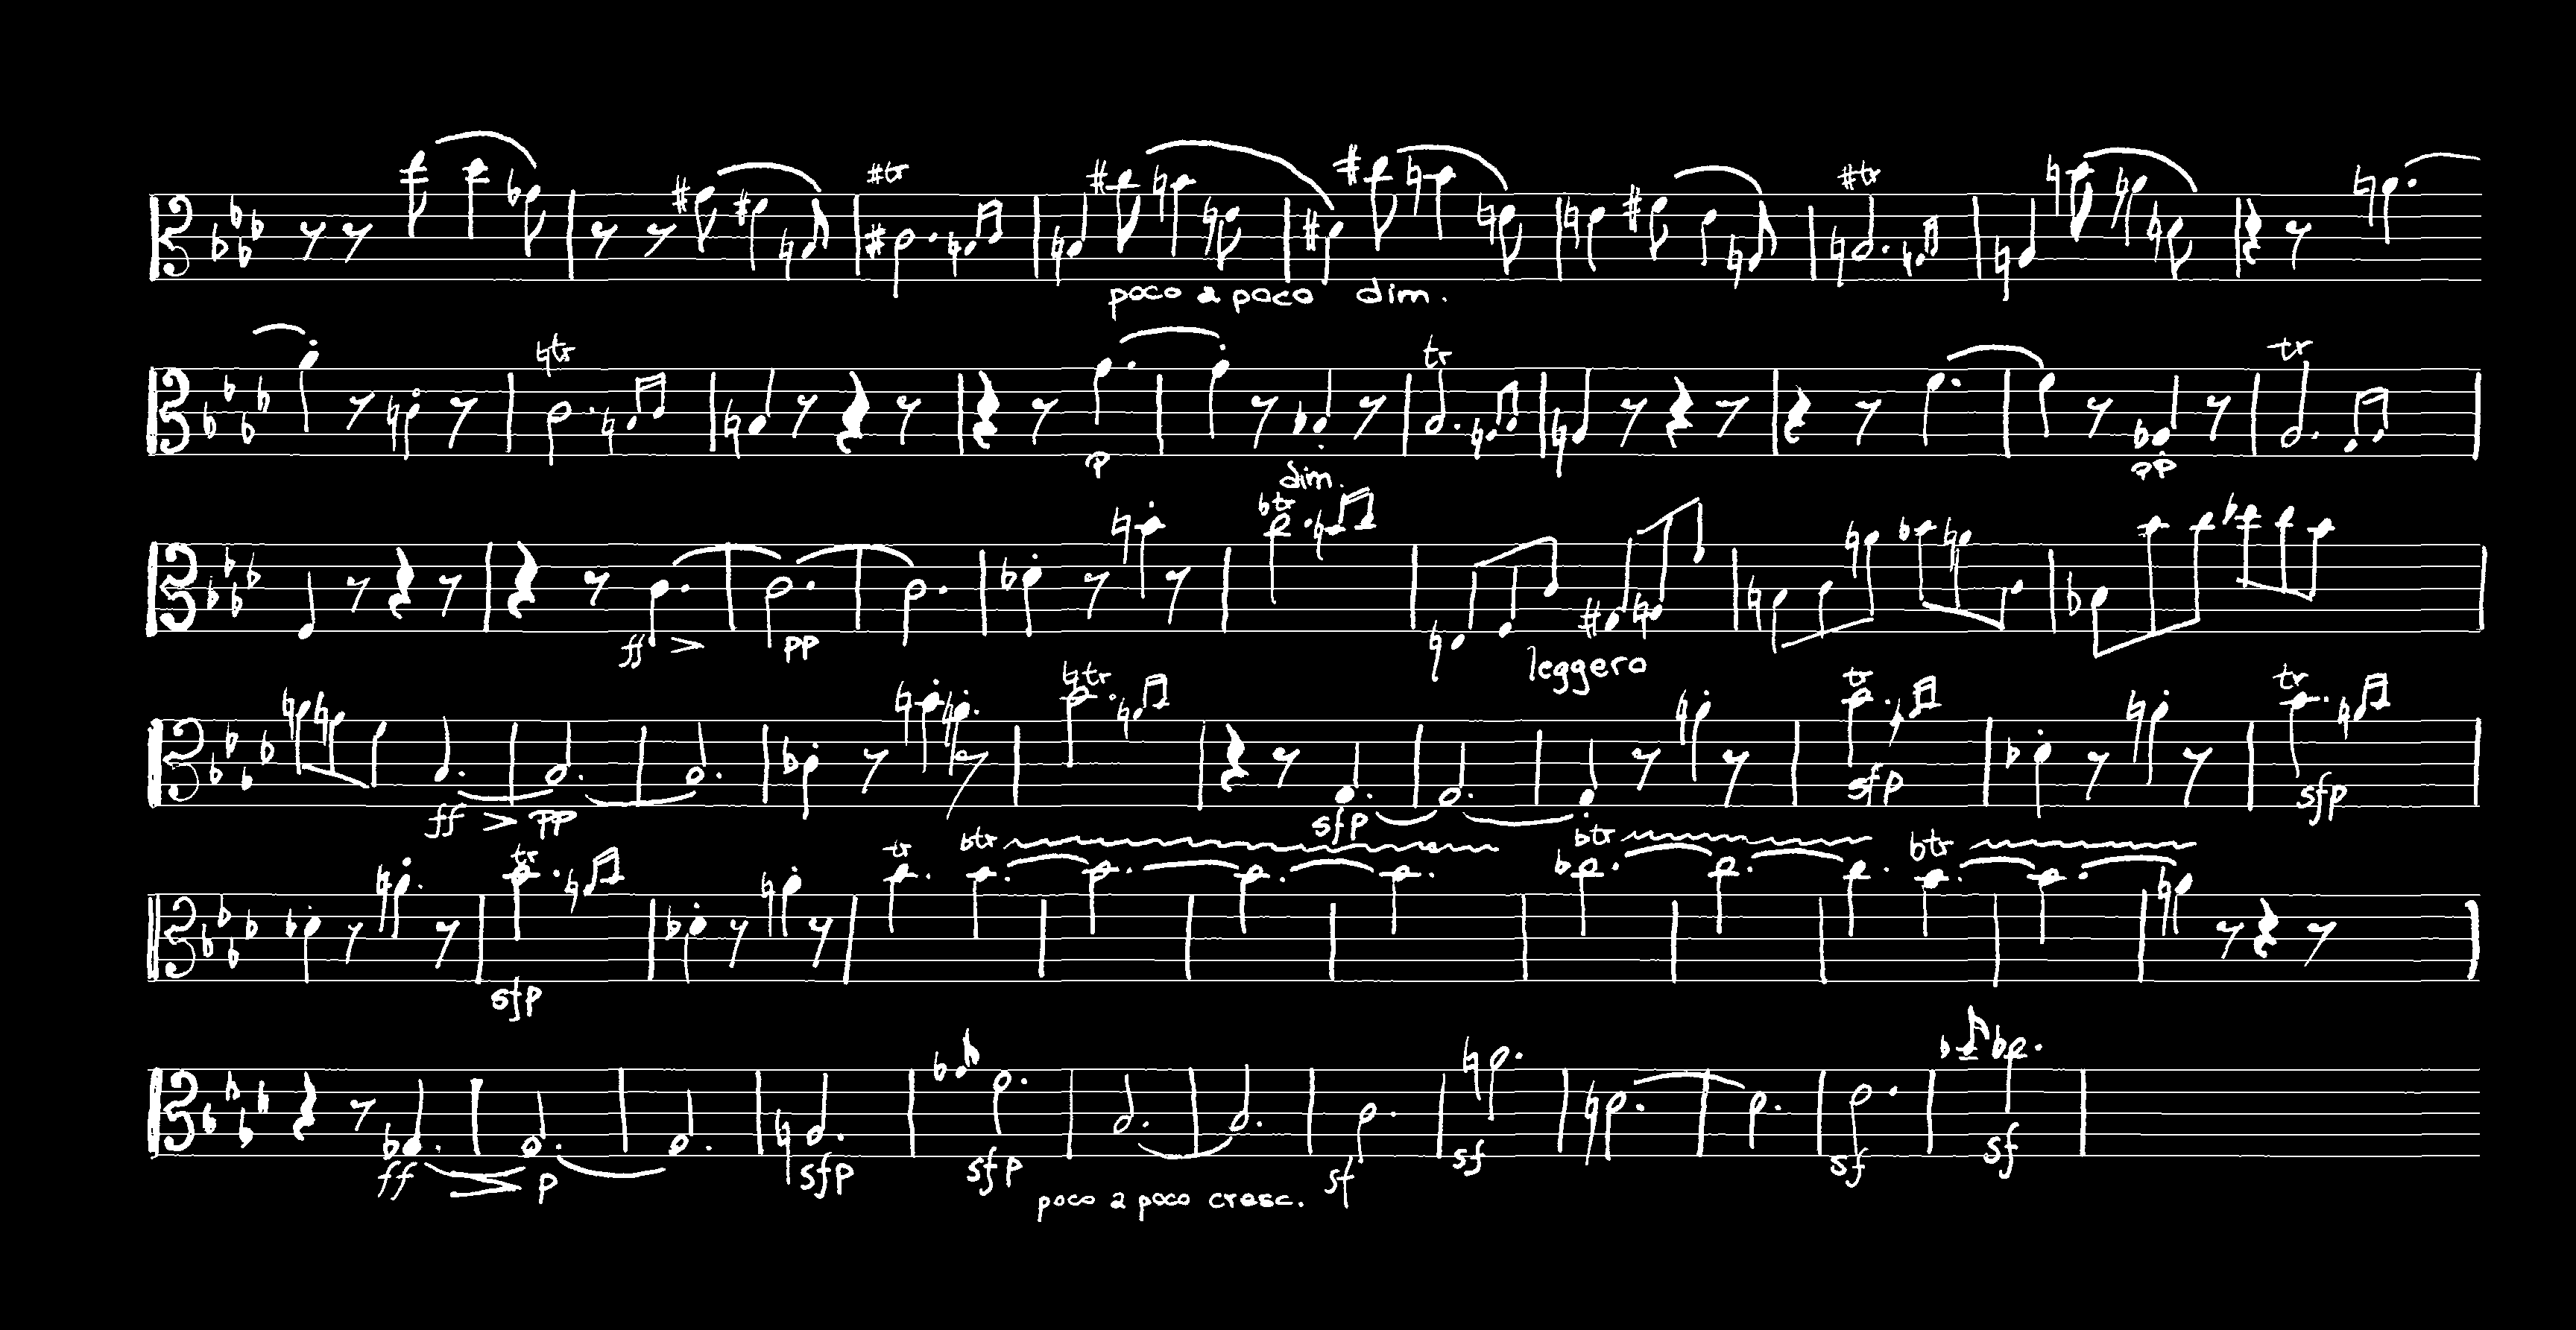 #tr #tr
poco a poco dim.
♮tr tr tr
p dim. pp
♭tr
ff > pp leggero
♮tr tr tr
ff > pp sfp sfp sfp
tr tr ♭tr ♭tr ♭tr
sfp
ff > p sfp sfp sf sf sf sf
poco a poco cresc.